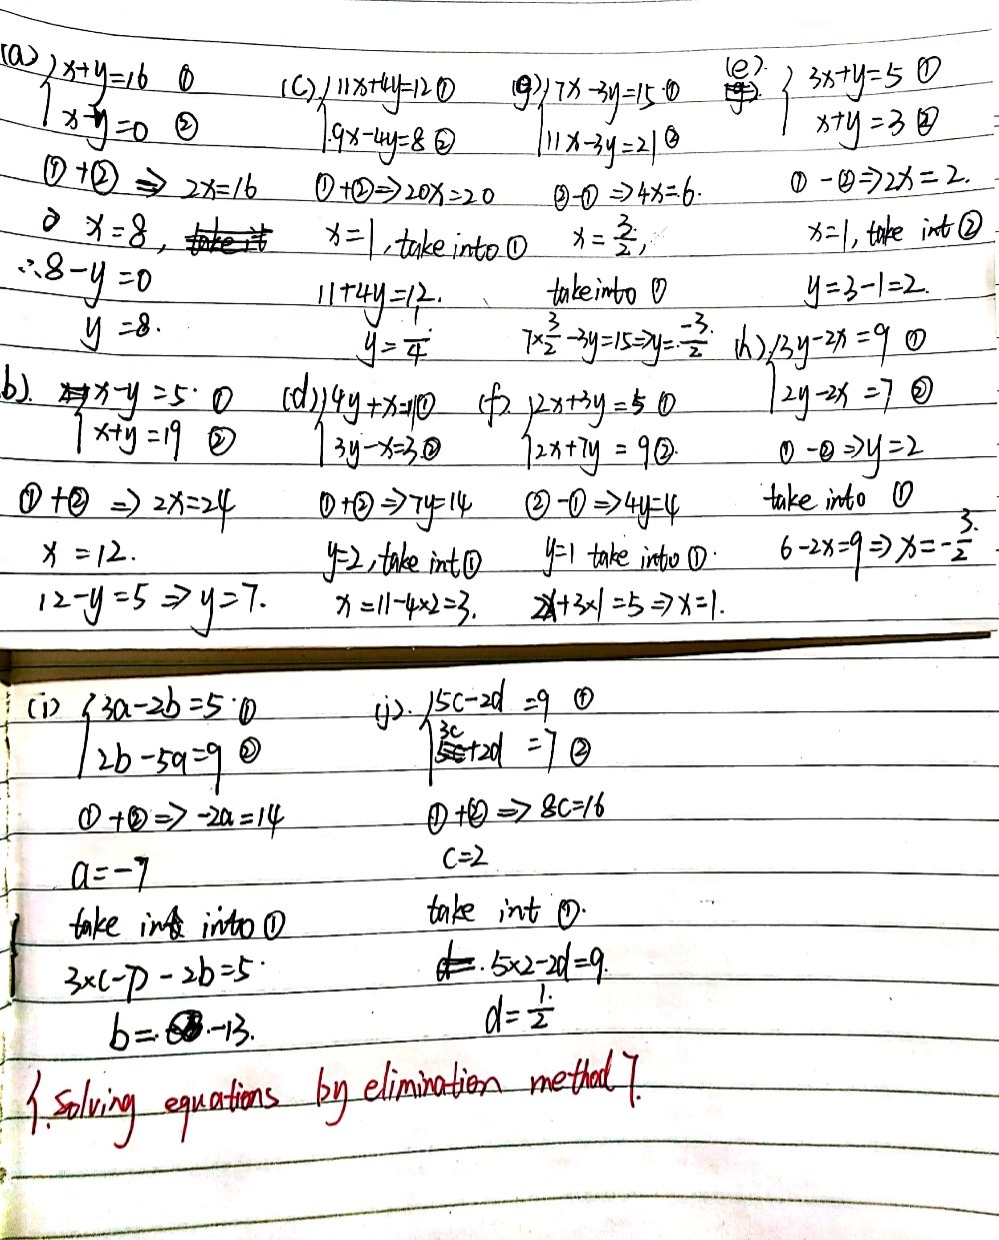 (a) { x+y=16 ①
x-y=0 ②
①+② ⇒ 2x=16
x=8,
∴8-y=0
y=8.
(c) { 11x+4y=12 ①
9x-4y=8 ②
①+②⇒20x=20
x=1, take into ①
11+4y=12.
y=1/4
(g) { 7x-3y=15 ①
11x-3y=21 ②
②-① ⇒4x=6.
x=3/2,
take into ①
7×3/2-3y=15⇒y=-3/2
(e). { 3x+y=5 ①
x+y=3 ②
①-②⇒2x=2.
x=1, take int ②
y=3-1=2.
b). { x-y=5. ①
x+y=19 ②
①+② ⇒ 2x=24
x=12.
12-y=5 ⇒ y=7.
(d) { 4y+x=11 ①
3y-x=3 ②
①+②⇒7y=14
y=2, take int ①
x=11-4×2=3.
(f). { 2x+3y=5 ①
2x+7y=9 ②.
②-①⇒4y=4
y=1 take into ①.
2x+3×1=5⇒x=1.
(h) { 3y-2x=9 ①
2y-2x=7 ②
①-②⇒y=2
take into ①
6-2x=9⇒x=-3/2.
(i) { 3a-2b=5. ①
2b-5a=9 ②
①+②⇒-2a=14
a=-7
take into ①
3×(-7)-2b=5.
b=-13.
(j). { 5c-2d=9 ①
3c+2d=7 ②
①+②⇒8c=16
c=2
take int ①.
5×2-2d=9.
d=1/2
{. Solving equations by elimination method }.